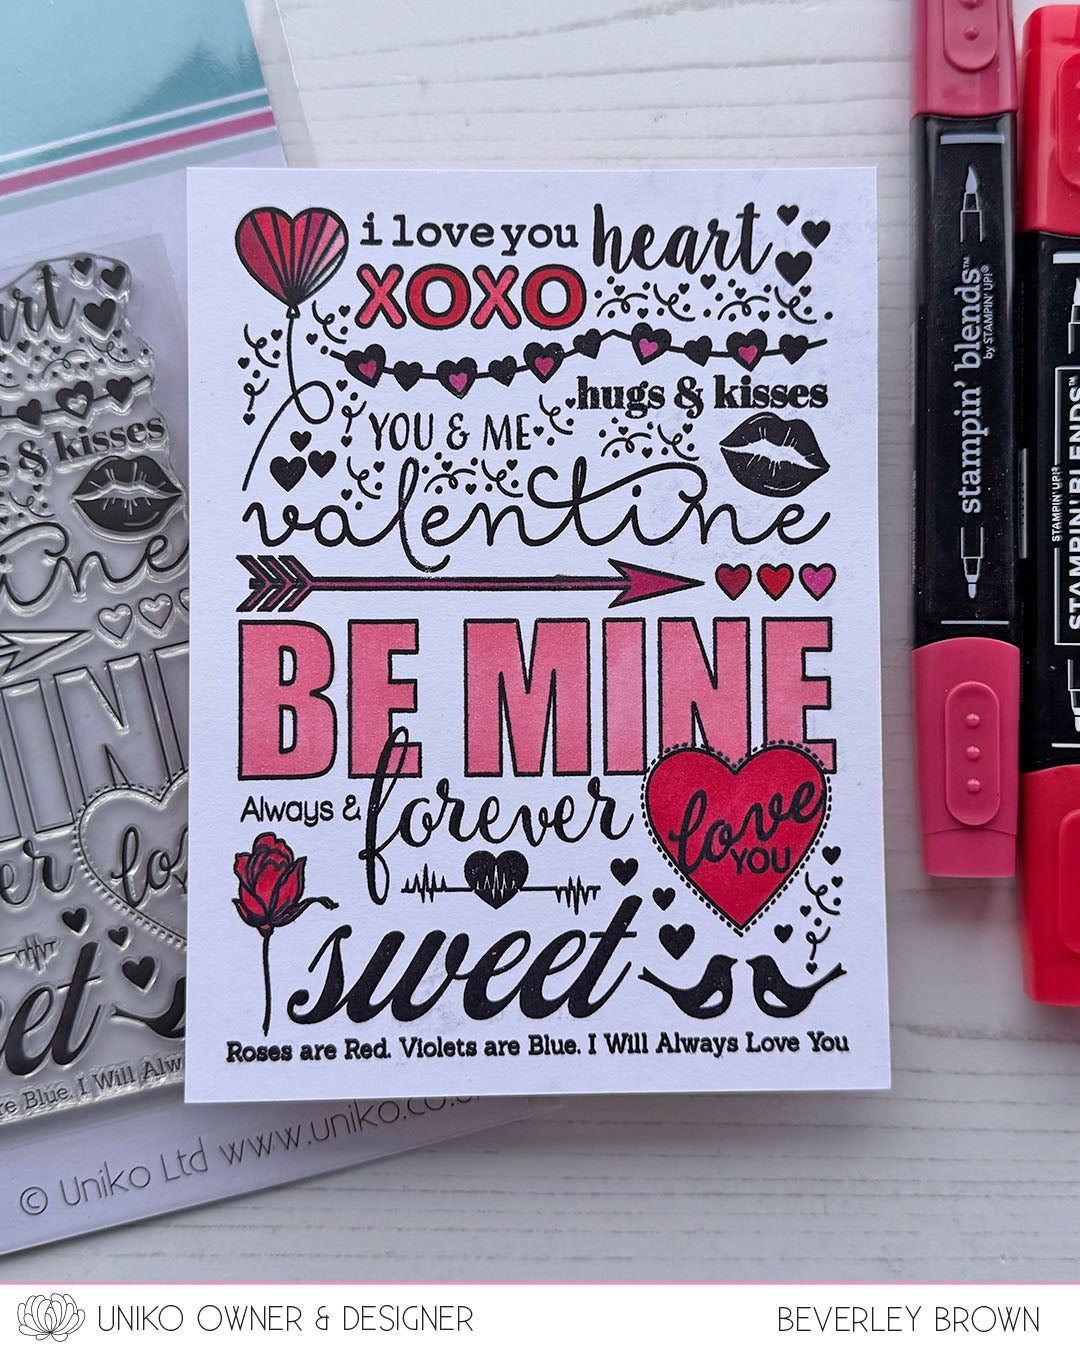 i love you
heart
XOXO
hugs & kisses
YOU & ME
valentine
BE MINE
Always &
forever
love
YOU
sweet
Roses are Red. Violets are Blue. I Will Always Love You
art
s & kisses
ine
INE
er
lo
eet
re Blue. I Will Alw
© Uniko Ltd www.uniko.co.u
stampin' blends™
by STAMPIN' UP!®
STAMPIN' UP!®
STAMPIN' BLENDS™
UNIKO OWNER & DESIGNER
BEVERLEY BROWN